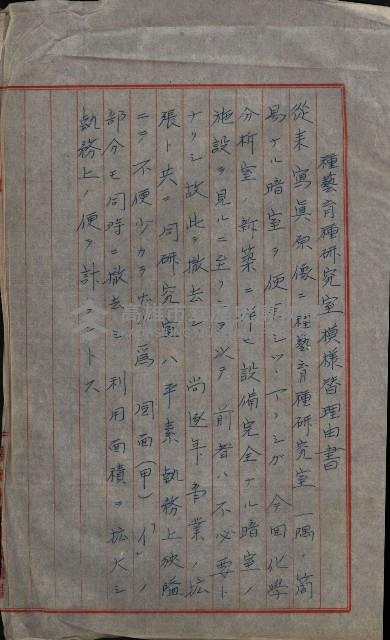 種藝育種研究室模様替理由書
從来寫眞原像ニ種藝育種研究室一隅ノ簡
易ナル暗室ヲ使用シツヽアリシガ今回化學
分析室ノ新築ニ伴ヒ設備完全ナル暗室ノ
施設ヲ見ルニ至リシヲ以テ前者ハ不必要ト
ナリシ故此ヲ撤去シ尚逐年事業ノ拡
張ト共ニ同研究室ハ平素執務上狭隘
ニテ不便少カラ 為圖面(甲)イノ
部分モ同時ニ撤去シ利用面積ヲ拡大シ
執務上ノ便ヲ計ラントス